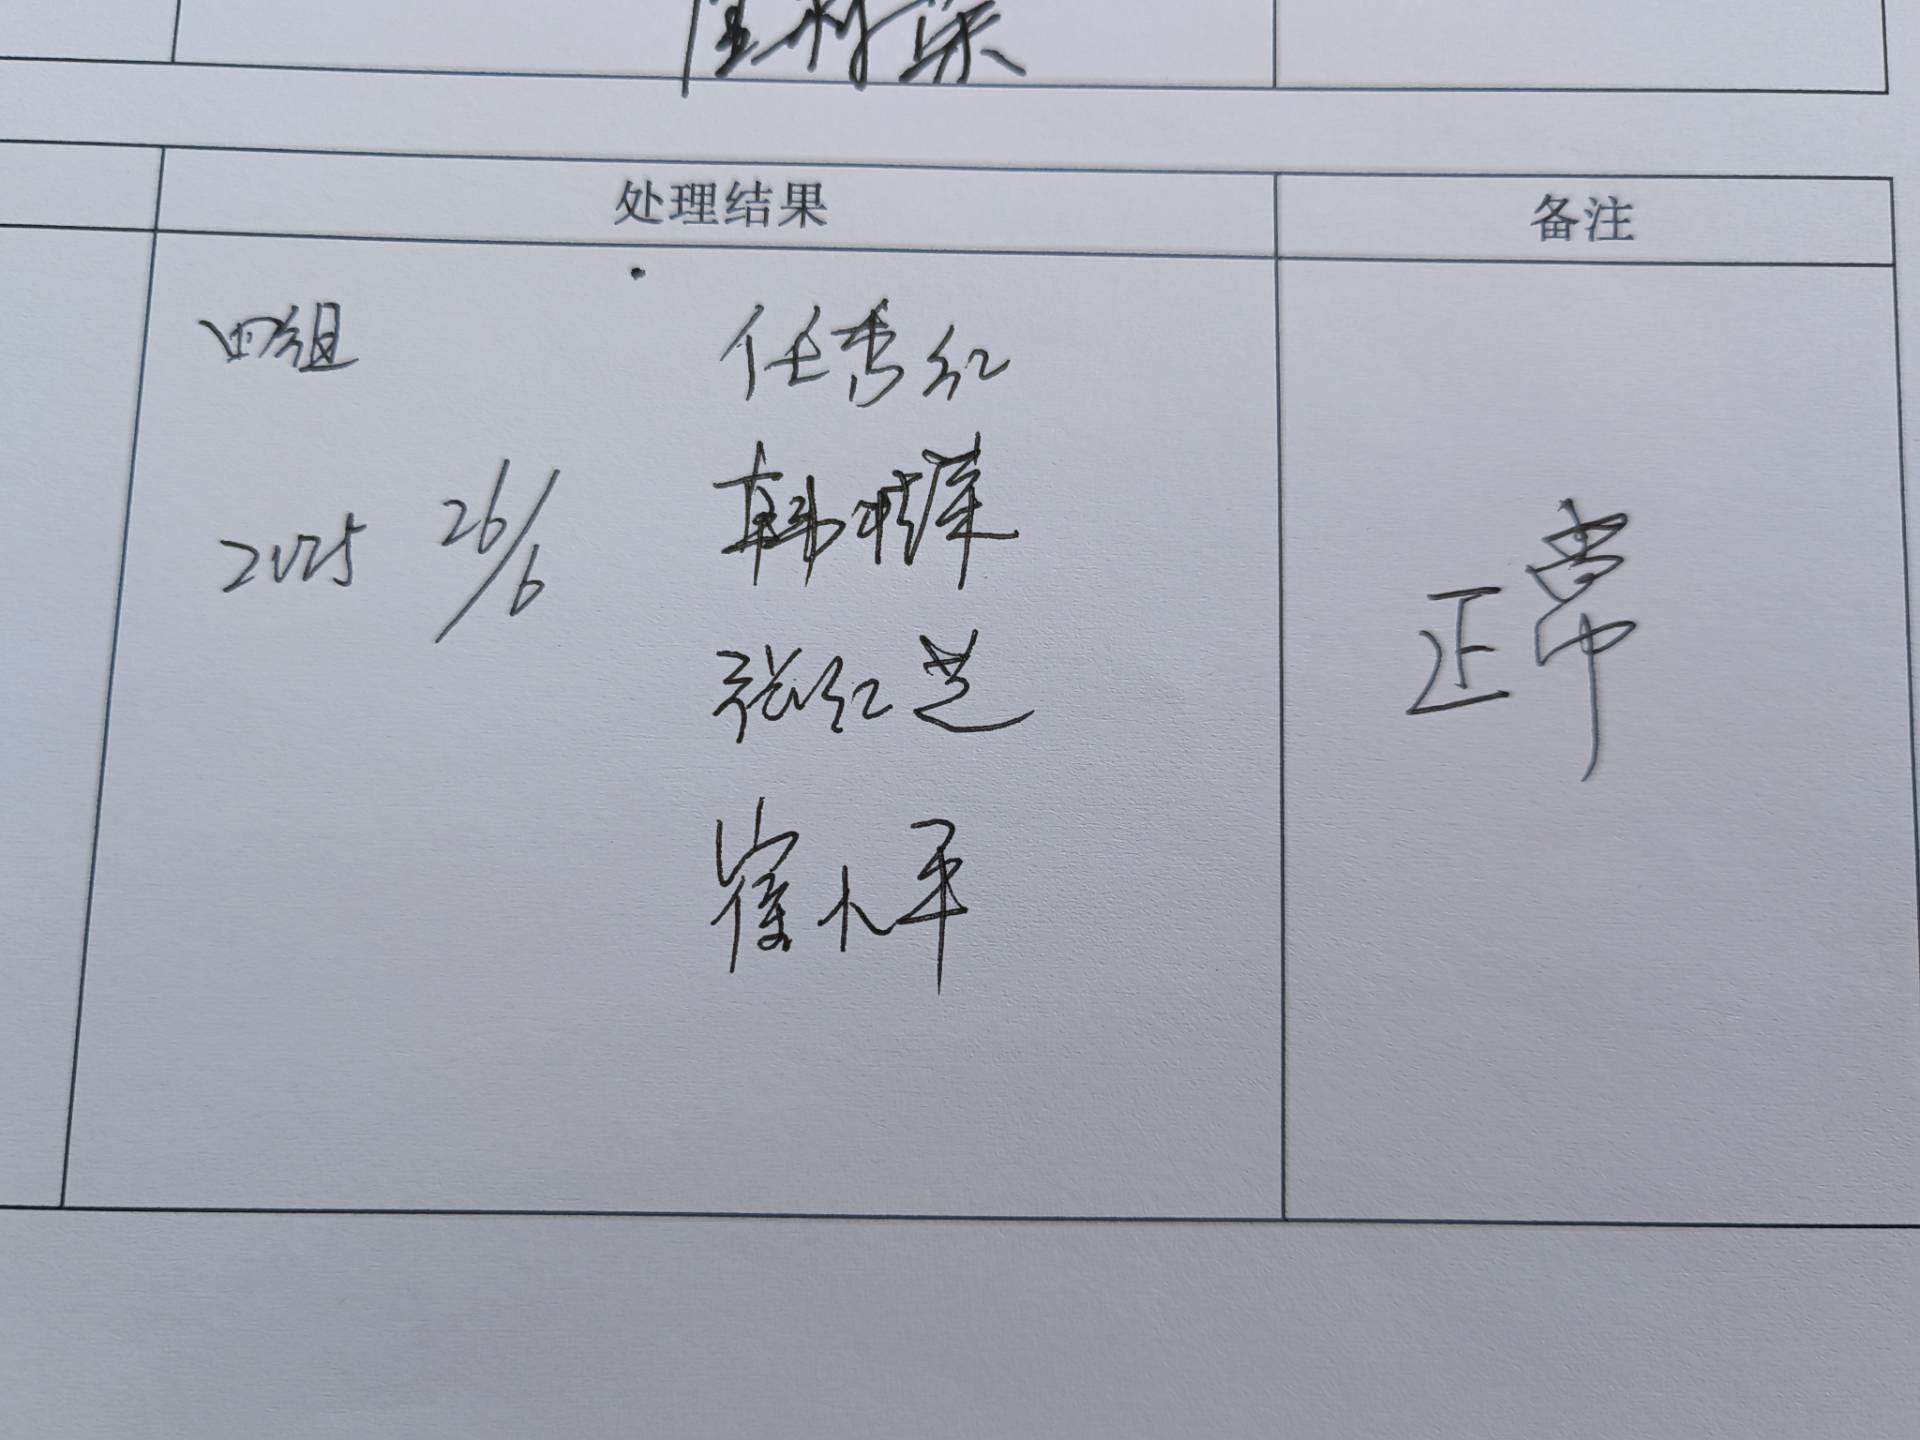 处理结果 备注
四组 任秀红
2025 26/6 韩
正常
张红芝
崔小平